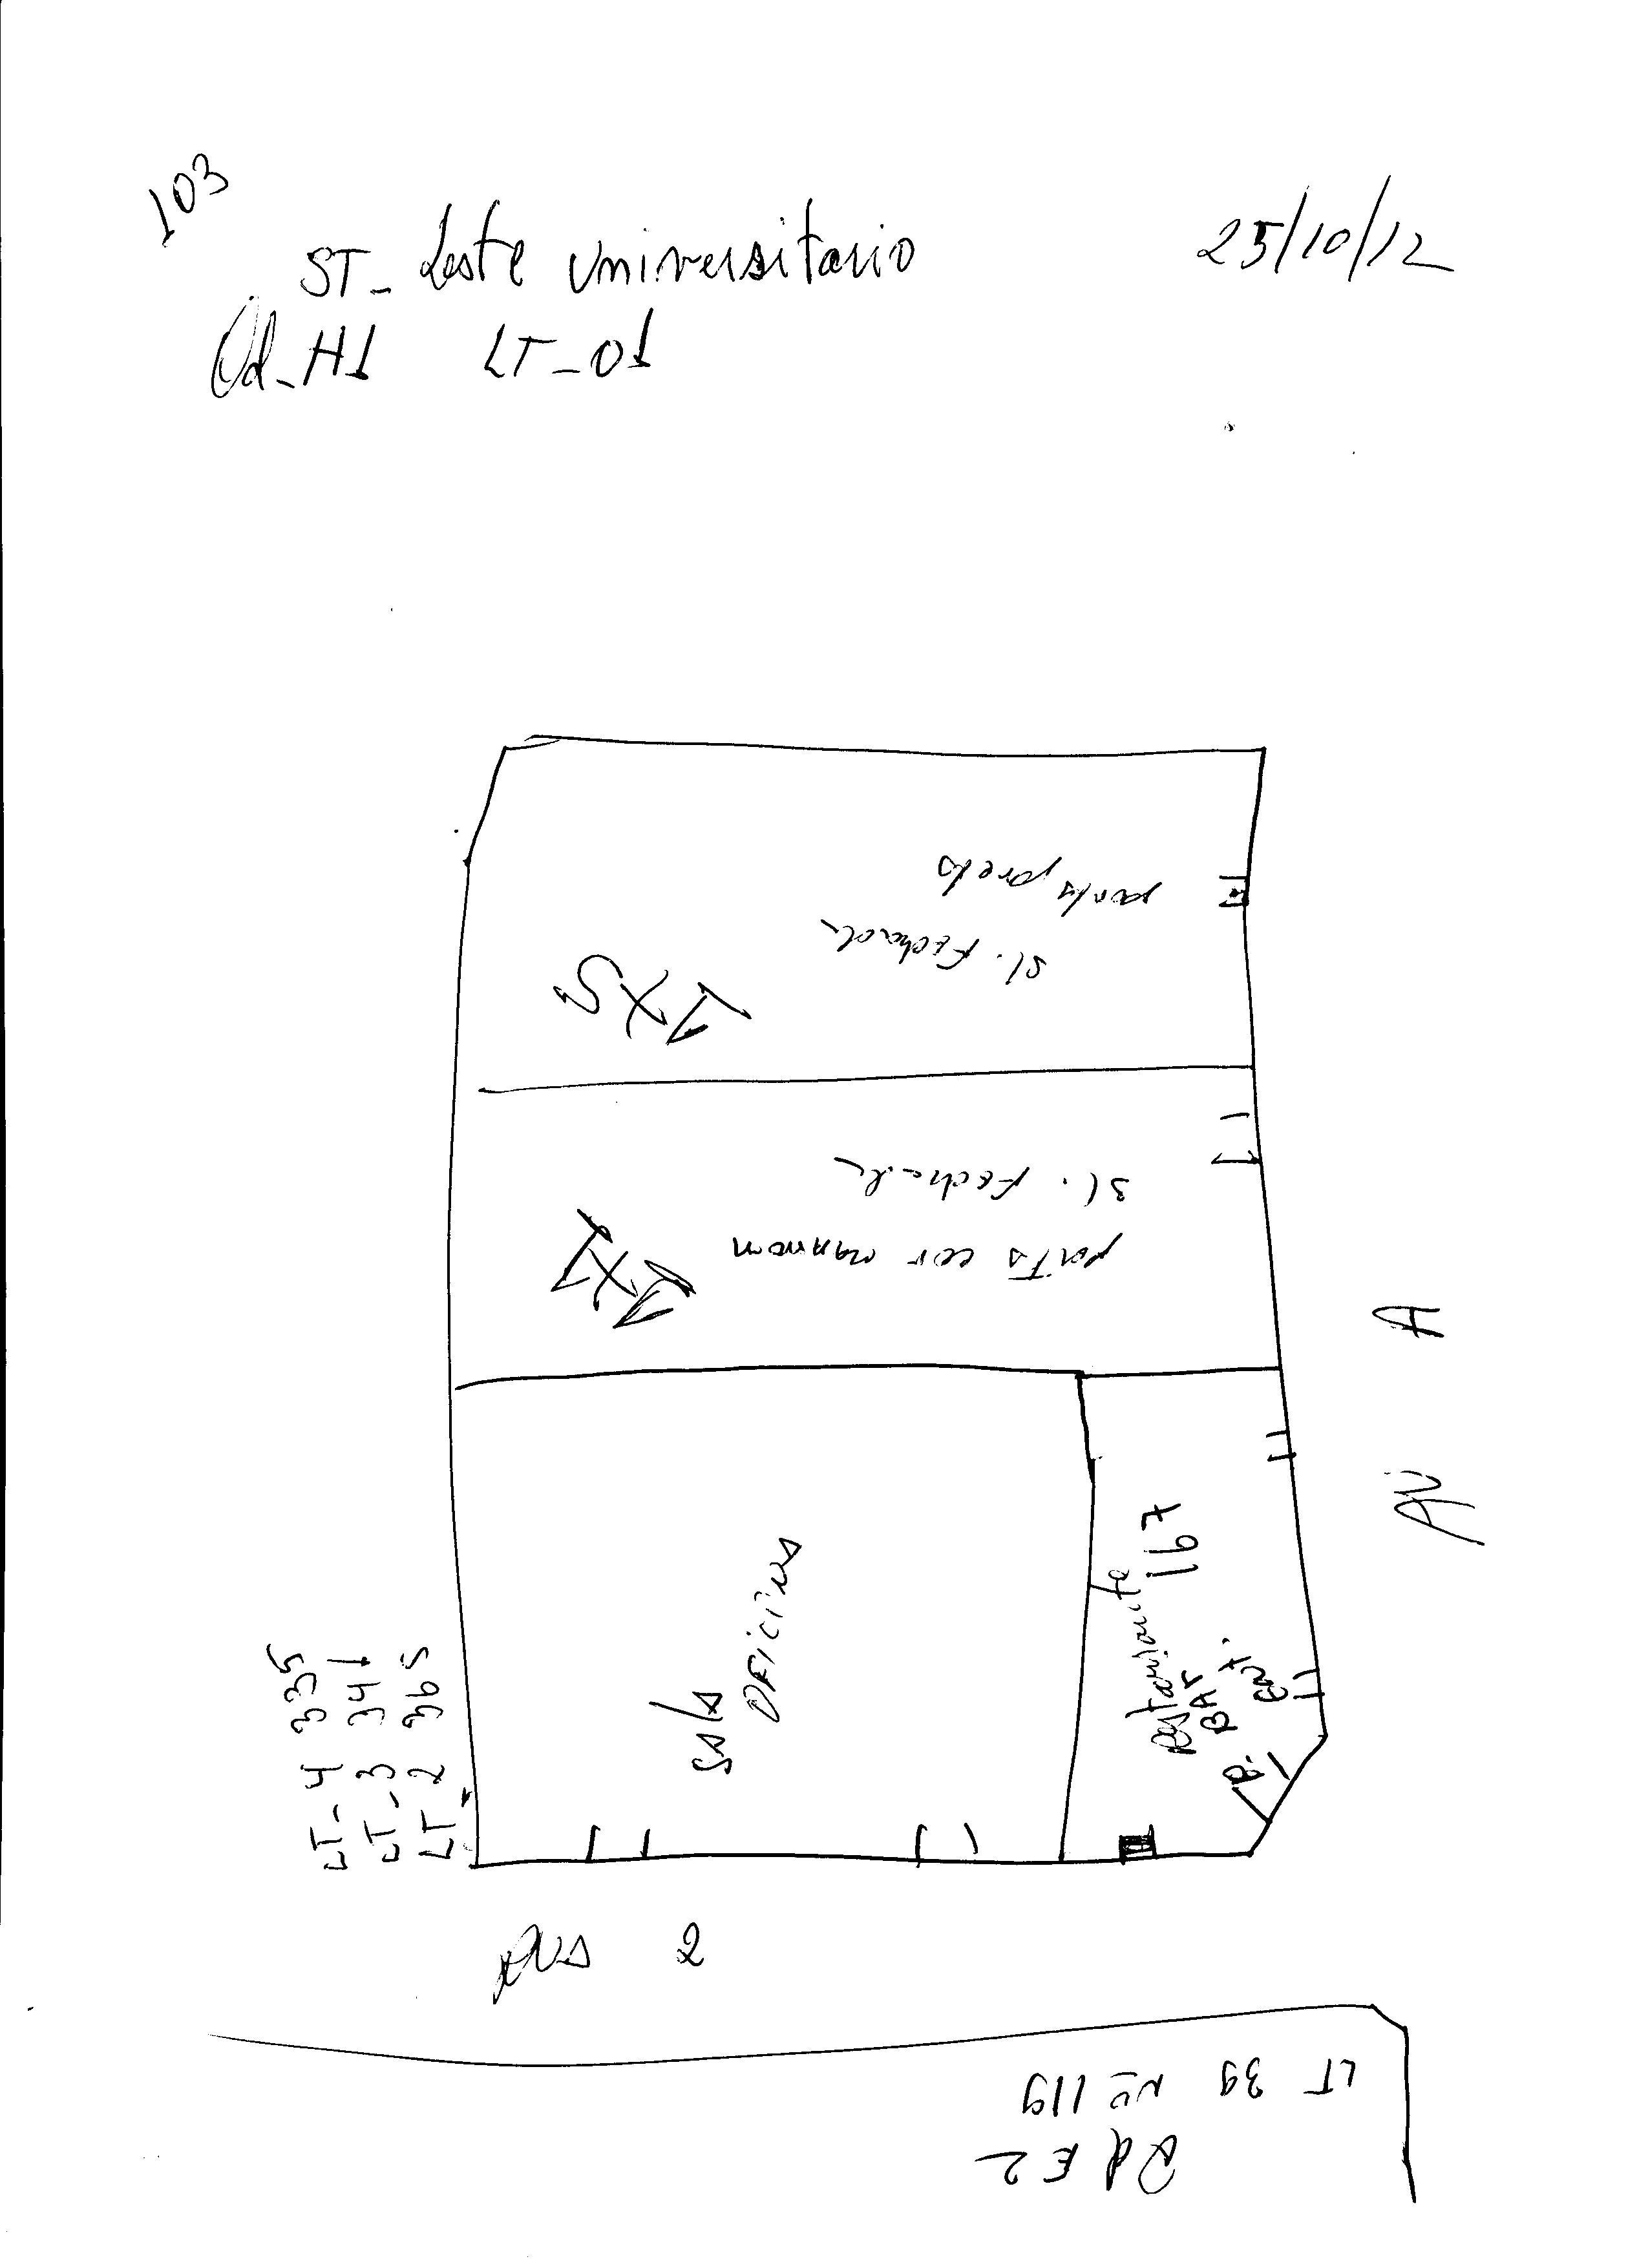 103
ST_ Leste Universitario
25/10/12
Qd_H1 LT_01
porta preta
sl. Fechada
1x5
sl. Fechada
porta cor marrom
1x1
AV A
sala
OFICINA
Restaurante
1167
BAR
Ent.
B.
LT_4 335
LT_3 341
LT_2 365
RUA 2
LT 39 Nº 119
Qd E2